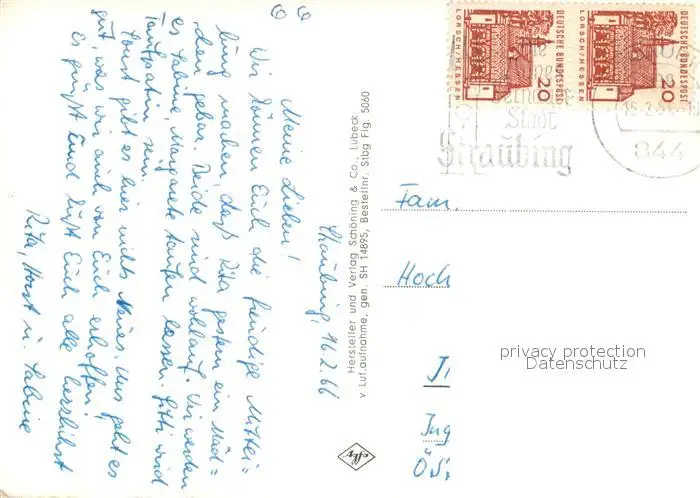 Straubing, 16.2.66
Meine Lieben!
Wir können Euch die freudige Mittei=
lung machen, daß Rita gestern ein Mäd=
chen gebar. Beide sind wohlauf. Wir werden
es Sabine, Margarete taufen lassen. Gitti wird
Taufpatin sein.
Sonst gibt es hier nichts Neues. Uns geht es
gut, was wir auch von Euch erhoffen!
Es grüßt und küßt Euch alle herzlichst
Rita, Horst u. Sabine
Hersteller und Verlag Schöning & Co., Lübeck
v Luftaufnahme, gen. SH 14895, Bestellnr. Stbg Frg. 5060
Agfa
DEUTSCHE BUNDESPOST
20
LORSCH/HESSEN
DEUTSCHE BUNDESPOST
20
LORSCH/HESSEN
Stadt
Straubing
844
Fam.
Hoch
Ing
privacy protection
Datenschutz